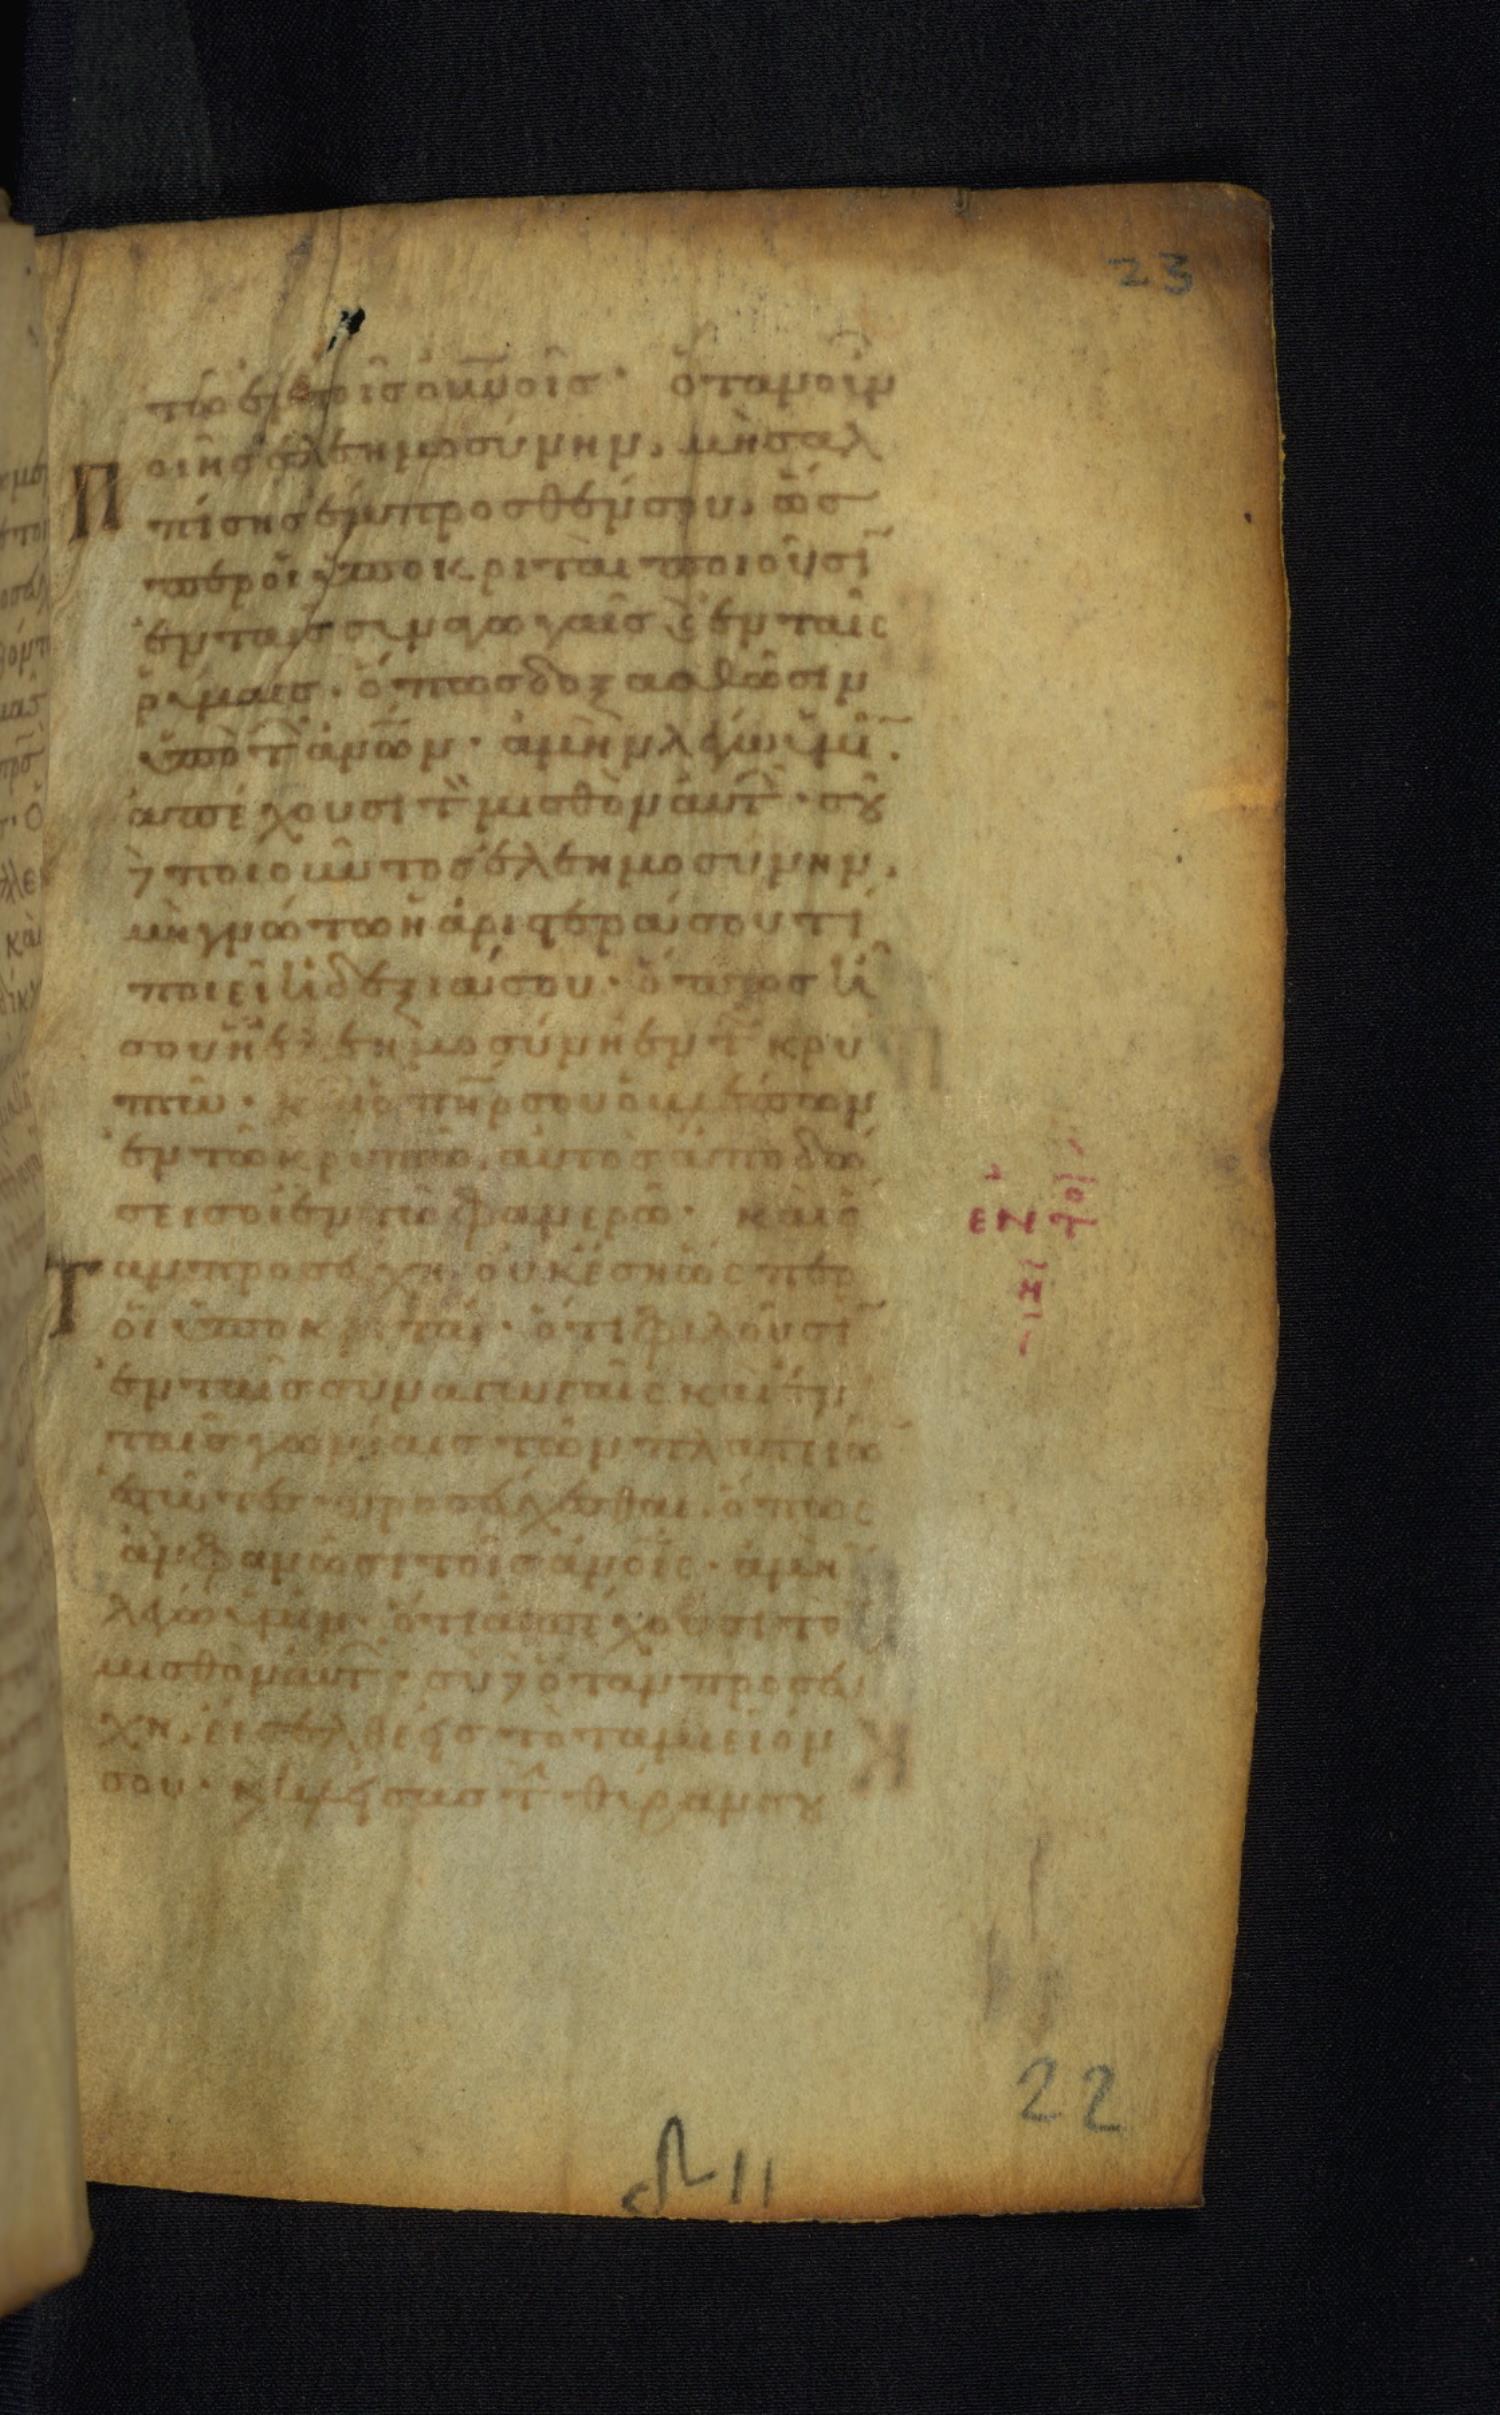 23
τῶ ἐν τοῖς οὐνοῖς· ὅταν οὖν
Ποιῆς ἐλεημοσύνην, μὴ σαλ
πίσης ἔμπροσθέν σου, ὥσ
περ οἱ ὑποκριταὶ ποιοῦσῖ
ἐν ταῖς συναγωγαῖς ϗ ἐν ταῖς
ῥύμαις· ὅπως δοξασθῶσιν
ὑπὸ τ ἀνων· ἀμὴν λέγω ὑμῖ·
ἀπέχουσι τ μισθὸν αὐτ· σοῦ
δὲ ποιοῦντος ἐλεημοσύνην,
μὴ γνώτω ἡ ἀριστερά σου τί
ποιεῖ ἡ δεξιά σου· ὅπως ἦ
σου ἡ ἐλεημοσύνη ἐν τ κρυ
πτῶ· καὶ ὁ πηρ σου ὁ βλέπων
ἐν τῶ κρυπτῶ, αὐτὸς ἀποδώ
σει σοι ἐν τῶ φανερῶ· καὶ ὅ
Ταν προσεύχη, οὐκ ἔση ὥσπερ
οἱ ὑποκριταί· ὅτι φιλοῦσῖ
ἐν ταῖς συναγωγαῖς καὶ ἐν
ταῖς γωνίαις τῶν πλατειῶ
ἑστῶτες προσεύχεσθαι, ὅπως
ἂν φανῶσι τοῖς ἀνοις· ἀμὴ
λέγω ὑμῖν· ὅτι ἀπέχουσι τὸ
μισθὸν αὐτ· σὺ δὲ ὅταν προσεύ
χη, εἴσελθε εἰς τὸ ταμιεῖόν
σου· ϗ κλείσας τ θύραν σου
22
11